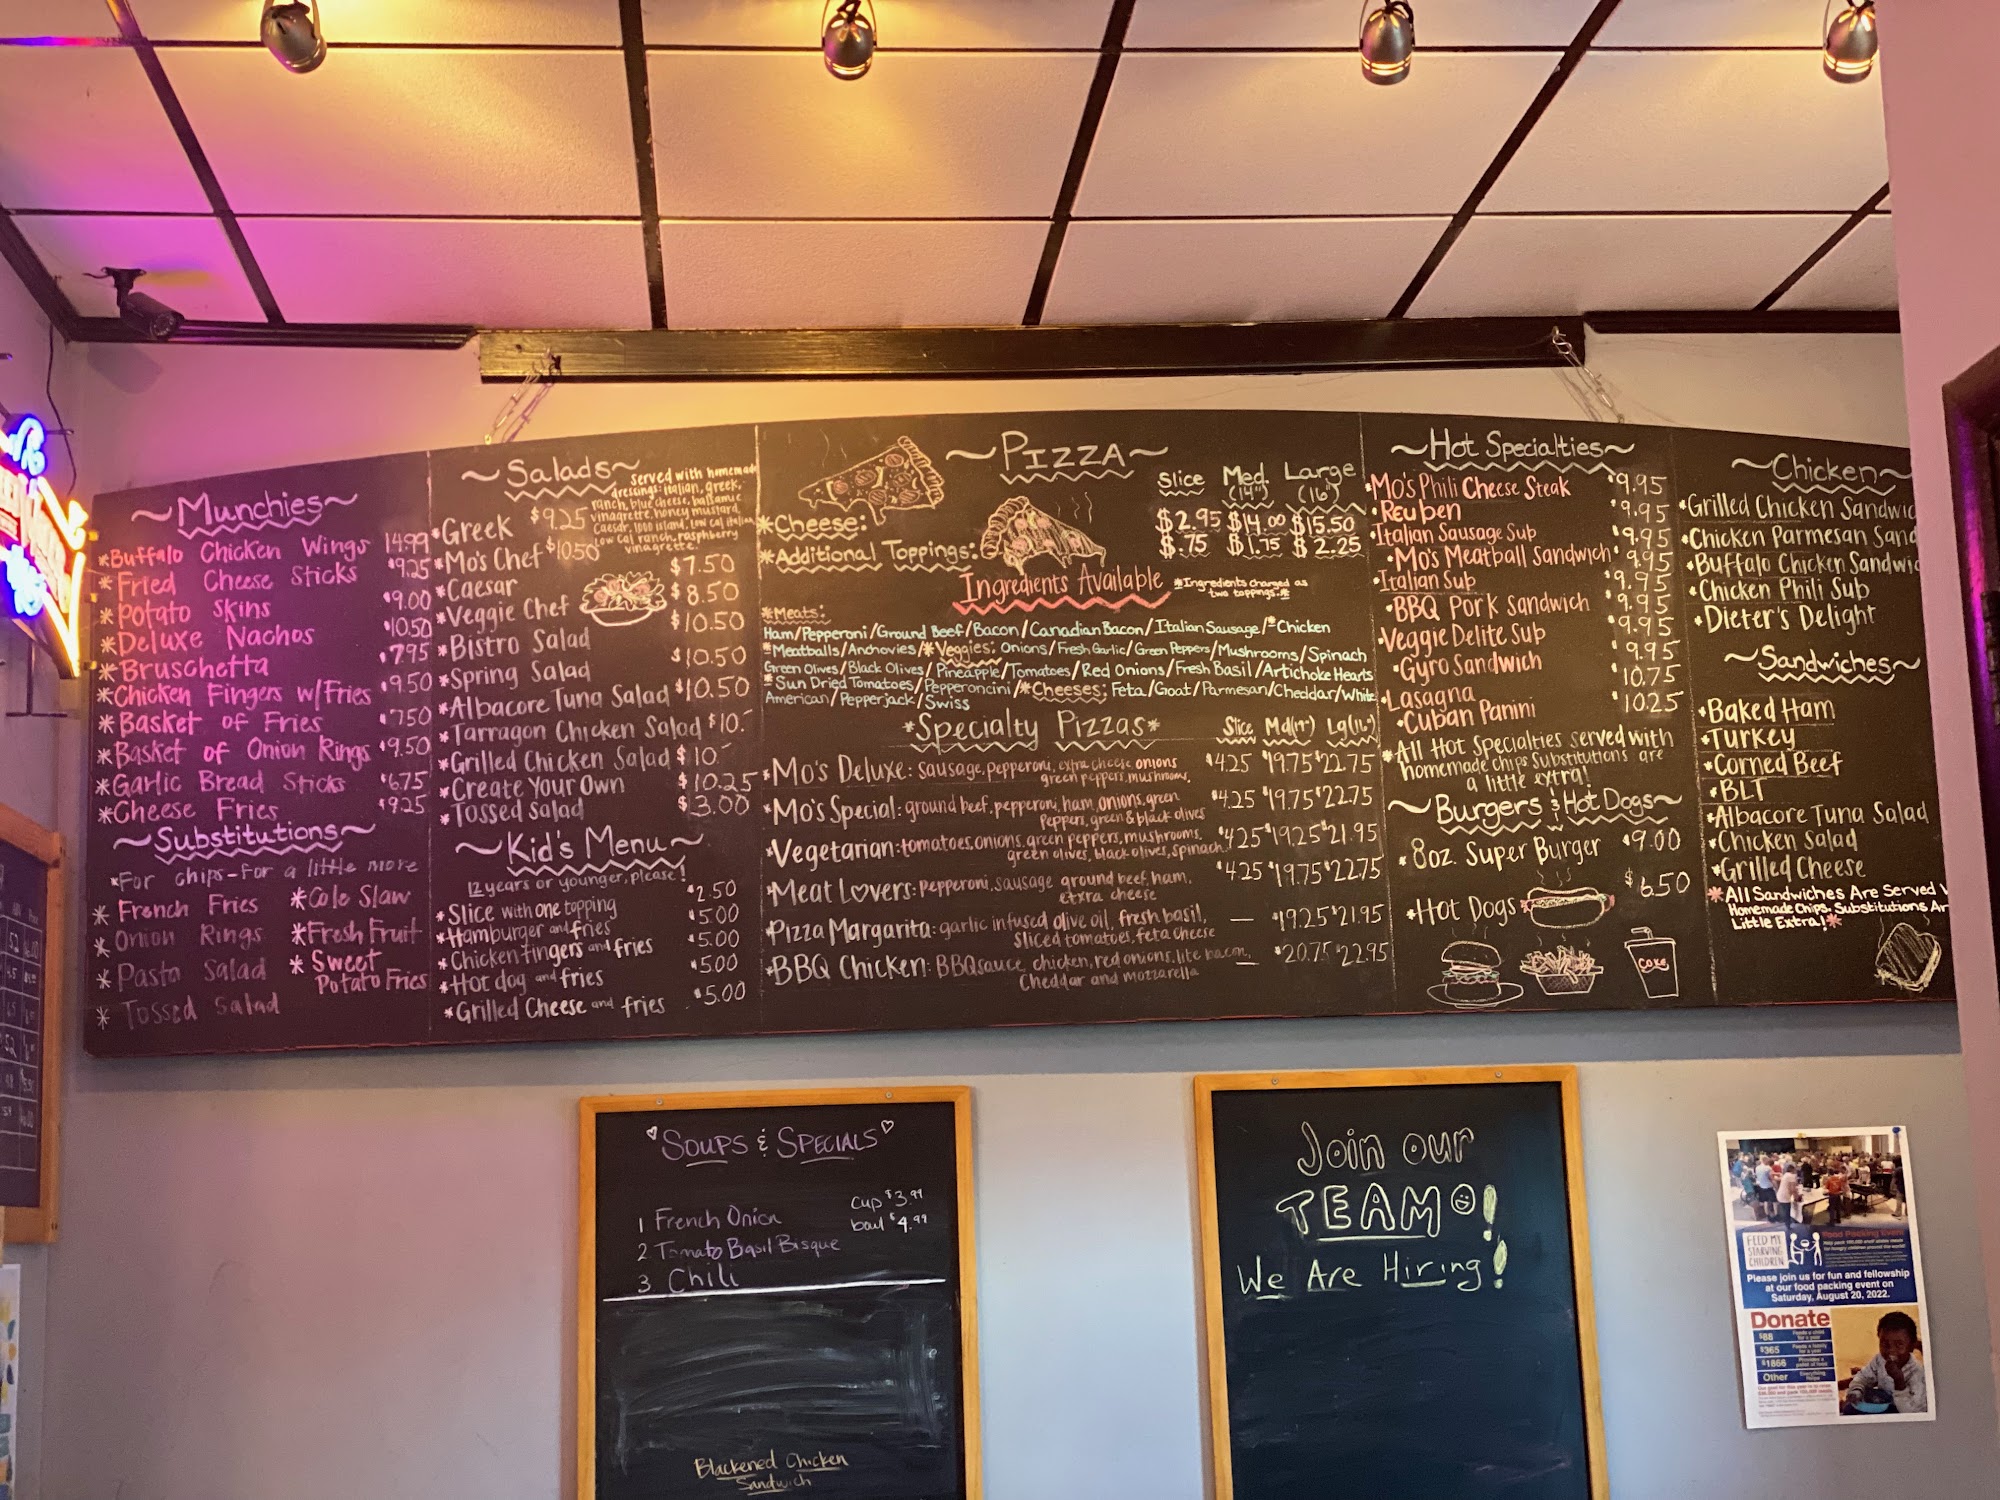 ~Munchies~
*Buffalo Chicken Wings 14.99
*Fried Cheese Sticks $9.25
*Potato Skins $9.00
*Deluxe Nachos $10.50
*Bruschetta $7.95
*Chicken Fingers w/Fries $9.50
*Basket of Fries $7.50
*Basket of Onion Rings $9.50
*Garlic Bread Sticks $6.75
*Cheese Fries $9.25
~Substitutions~
*For chips-for a little more
* French Fries
* Onion Rings
* Pasta Salad
* Tossed Salad
*Cole Slaw
*Fresh Fruit
* Sweet
Potato Fries
~Salads~
Served with homemade
dressings: italian, greek,
ranch, blue cheese, balsamic
vinagrette, honey mustard,
Caesar, 1000 island, Low Cal italian
Low Cal ranch, raspberry
vinagrette.
*Greek $9.25
*Mo's Chef $10.50
*Caesar $7.50
*Veggie Chef $8.50
*Bistro Salad $10.50
*Spring Salad $10.50
*Albacore Tuna Salad $10.50
*Tarragon Chicken Salad $10.-
*Grilled Chicken Salad $10.-
*Create Your Own $10.25
*Tossed Salad $3.00
~Kid's Menu~
12 years or younger, please!
*Slice with one topping $2.50
*Hamburger and fries $5.00
*Chicken fingers and fries $5.00
*Hot dog and fries $5.00
*Grilled Cheese and fries $5.00
~Pizza~
Slice Med. (14") Large (16")
*Cheese: $2.95 $14.00 $15.50
*Additional Toppings: $.75 $1.75 $2.25
Ingredients Available
*Ingredients charged as
two toppings.*
*Meats:
Ham/Pepperoni/Ground Beef/Bacon/Canadian Bacon/Italian Sausage/*Chicken
*Meatballs/Anchovies/*Veggies: Onions/Fresh Garlic/Green Peppers/Mushrooms/Spinach
Green Olives/Black Olives/Pineapple/Tomatoes/Red Onions/Fresh Basil/Artichoke Hearts
*Sun Dried Tomatoes/Pepperoncini/*Cheeses: Feta/Goat/Parmesan/Cheddar/White
American/Pepperjack/Swiss
*Specialty Pizzas*
Slice Md(14") Lg(16")
*Mo's Deluxe: sausage, pepperoni, extra cheese, onions $4.25 $19.75 $22.75
green peppers, mushrooms,
*Mo's Special: ground beef, pepperoni, ham, onions, green $4.25 $19.75 $22.75
peppers, green & black olives
*Vegetarian: tomatoes, onions, green peppers, mushrooms, $4.25 $19.25 $21.95
green olives, black olives, spinach
*Meat Lovers: pepperoni, sausage ground beef, ham, $4.25 $19.75 $22.75
etxra cheese
*Pizza Margarita: garlic infused olive oil, fresh basil, — $19.25 $21.95
sliced tomatoes, feta cheese
*BBQ Chicken: BBQ sauce, chicken, red onions, lite bacon, — $20.75 $22.95
Cheddar and mozzarella
~Hot Specialties~
*Mo's Phili Cheese Steak $9.95
*Reuben $9.95
*Italian Sausage Sub $9.95
*Mo's Meatball Sandwich $9.95
*Italian Sub $9.95
*BBQ Pork Sandwich $9.95
*Veggie Delite Sub $9.95
*Gyro Sandwich $9.95
*Lasagna $10.75
*Cuban Panini $10.25
*All Hot Specialties served with
homemade chips Substitutions are
a little extra!
~Burgers & Hot Dogs~
*8oz. Super Burger $9.00
*Hot Dogs $6.50
COKE
~Chicken~
*Grilled Chicken Sandwic
*Chicken Parmesan Sand
*Buffalo Chicken Sandwic
*Chicken Phili Sub
*Dieter's Delight
~Sandwiches~
*Baked Ham
*Turkey
*Corned Beef
*BLT
*Albacore Tuna Salad
*Chicken Salad
*Grilled Cheese
*All Sandwiches Are Served
Homemade Chips, Substitutions Ar
Little Extra!*
Soups & Specials
1 French Onion cup $3.99
bowl $4.99
2 Tomato Basil Bisque
3 Chili
Blackened Chicken
Sandwich
Join our
TEAM!
We Are Hiring!
FEED MY
STARVING
CHILDREN
Food Packing Event
Please join us for fun and fellowship
at our food packing event on
Saturday, August 20, 2022.
Donate
$88
$365
$1866
Other